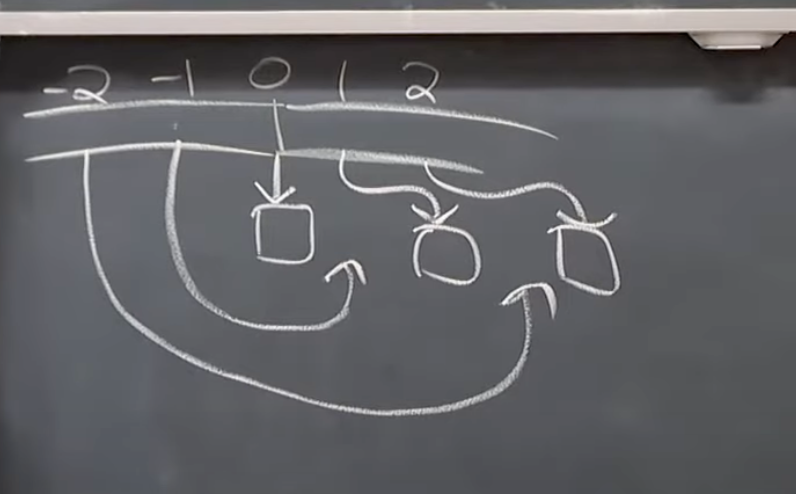 -2 -1 0 1 2